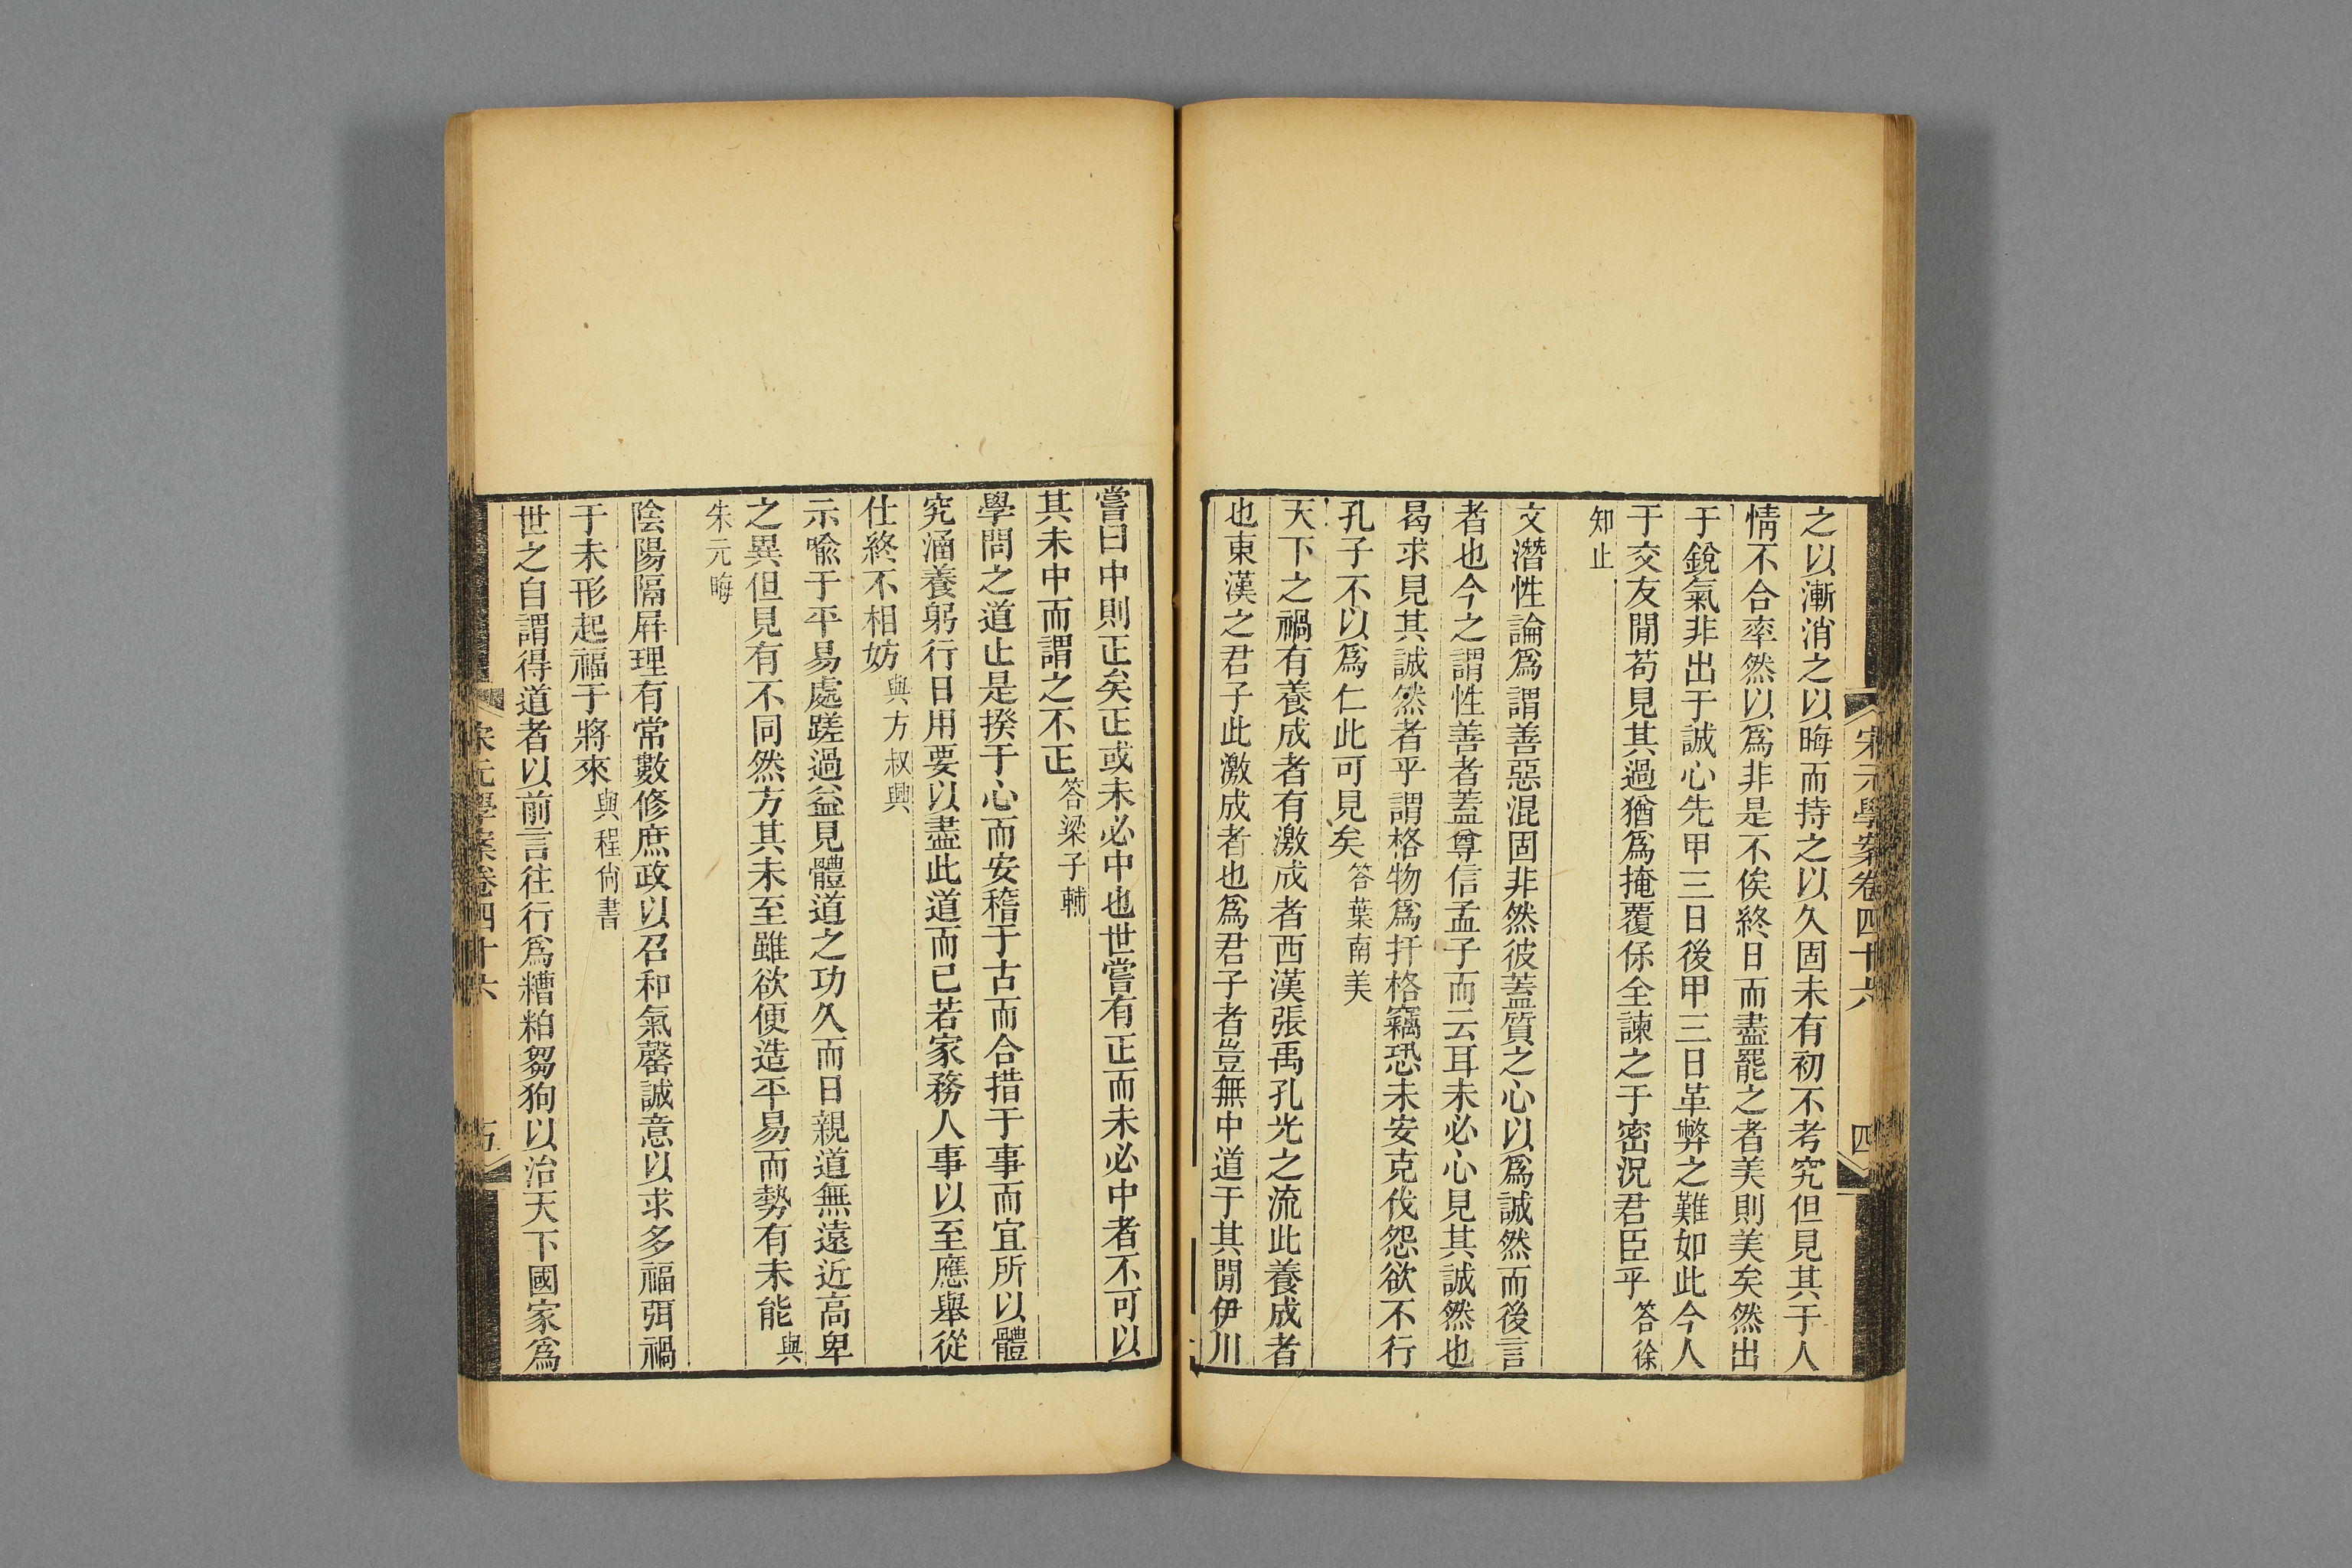 宋元學案卷四十六
四
之以漸消之以晦而持之以久固未有初不考究但見其于人
情不合率然以爲非是不俟終日而盡罷之者美則美矣然出
于銳氣非出于誠心先甲三日後甲三日革弊之難如此今人
于交友閒苟見其過猶爲掩覆保全諫之于密況君臣乎答徐
知止
文潛性論爲謂善惡混固非然彼蓋質之心以爲誠然而後言
者也今之謂性善者蓋尊信孟子而云耳未必心見其誠然也
曷求見其誠然者乎謂格物爲扞格竊恐未安克伐怨欲不行
孔子不以爲仁此可見矣答葉南美
天下之禍有養成者有激成者西漢張禹孔光之流此養成者
也東漢之君子此激成者也爲君子者豈無中道于其閒伊川
嘗曰中則正矣正或未必中也世嘗有正而未必中者不可以
其未中而謂之不正答梁子輔
學問之道止是揆于心而安稽于古而合措于事而宜所以體
究涵養躬行日用要以盡此道而已若家務人事以至應舉從
仕終不相妨與方叔興
示喻于平易處蹉過益見體道之功久而日親道無遠近高卑
之異但見有不同然方其未至雖欲便造平易而勢有未能與
朱元晦
陰陽隔屛理有常數修庶政以召和氣罄誠意以求多福弭禍
于未形起福于將來與程尙書
世之自謂得道者以前言往行爲糟粕芻狗以治天下國家爲
宋元學案卷四十六
五